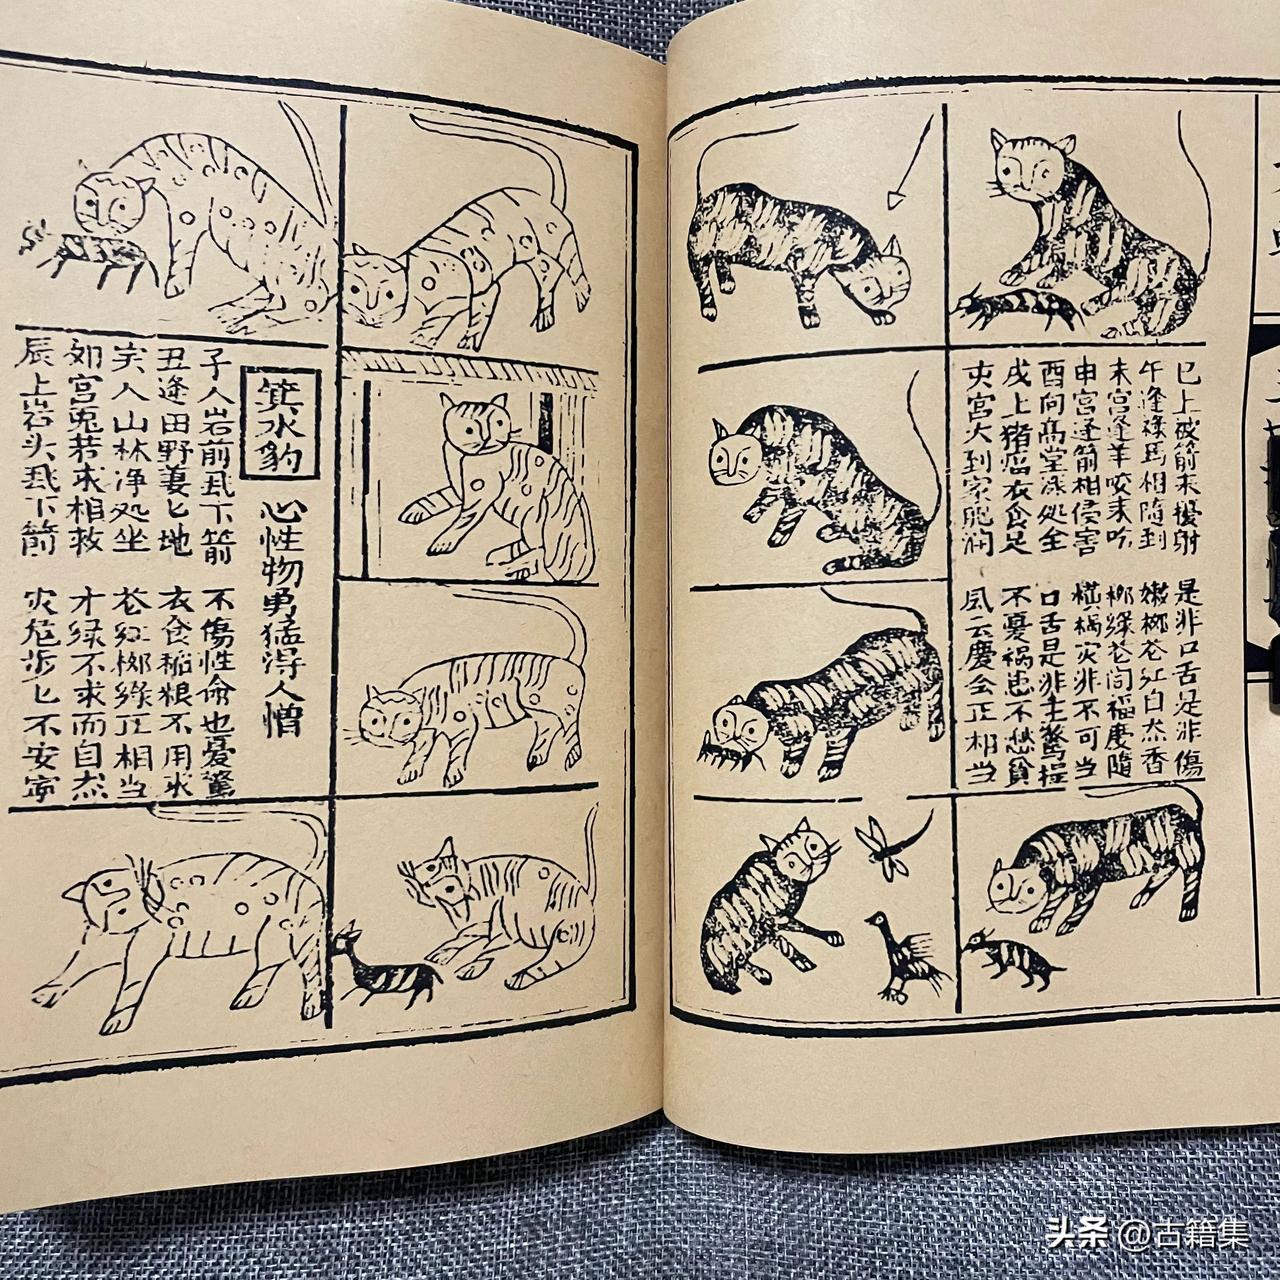 巳上被箭未擾射 是非口舌是非傷
午逢祿馬相隨到 嫩柳花紅白杰香
未宮逢羊咬未吟 柳綠花間福慶隨
申宮逢箭相侵害 橫禍灾非不可當
酉向高堂深処全 口舌是非主驚
戌上猪 衣食足 不憂禍患不愁貧
宮大到家肥潤 凤云慶会正相当
箕水豹
心性物勇猛得人憎
子人岩前 下箭 不傷性命也憂驚
丑逢田野姜匕地 衣食稲粮不用求
寅入山林净処坐 花紅柳綠正相当
如宫兎若求相救 才緑不求而自杰
辰上岩头 下箭 灾危步匕不安寕
头条 @古籍集